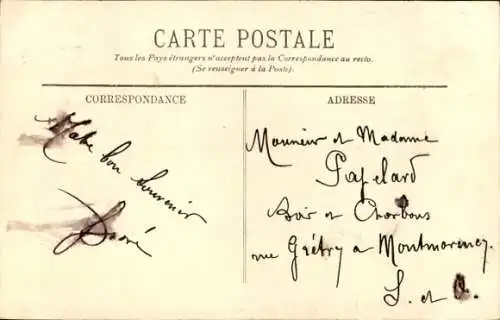 CARTE POSTALE
Tous les Pays étrangers n'acceptent pas la Correspondance au recto.
(Se renseigner à la Poste).
CORRESPONDANCE
bon souvenir
ADRESSE
Monsieur et Madame
Papelard
Bois et Charbons
rue Grétry à Montmorency
S. et O.